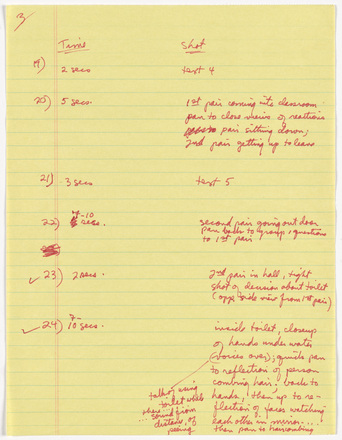 3
Time Shot
19) 2 secs text 4
20) 5 secs. 1st pair coming into classroom
pan to close views of reactions
pair sitting down;
2nd pair getting up to leave
21) 3 secs text 5
22) 7-10 secs. second pair going out door
pan back to group; questions
to 1st pair
✓ 23) 2 secs. 2nd pair in hall, tight
shot of decision about toilet
(opp. side view from 1st pair)
✓ 24) 7-10 secs. inside toilet, closeup
of hands under water
(voices over); quick pan
to reflection of person
combing hair; back to
hands, then up to re-
flection of faces watching
each other in mirror...
then pan to
talk of using
toilet while
there...
sound from
distance, of
peeing